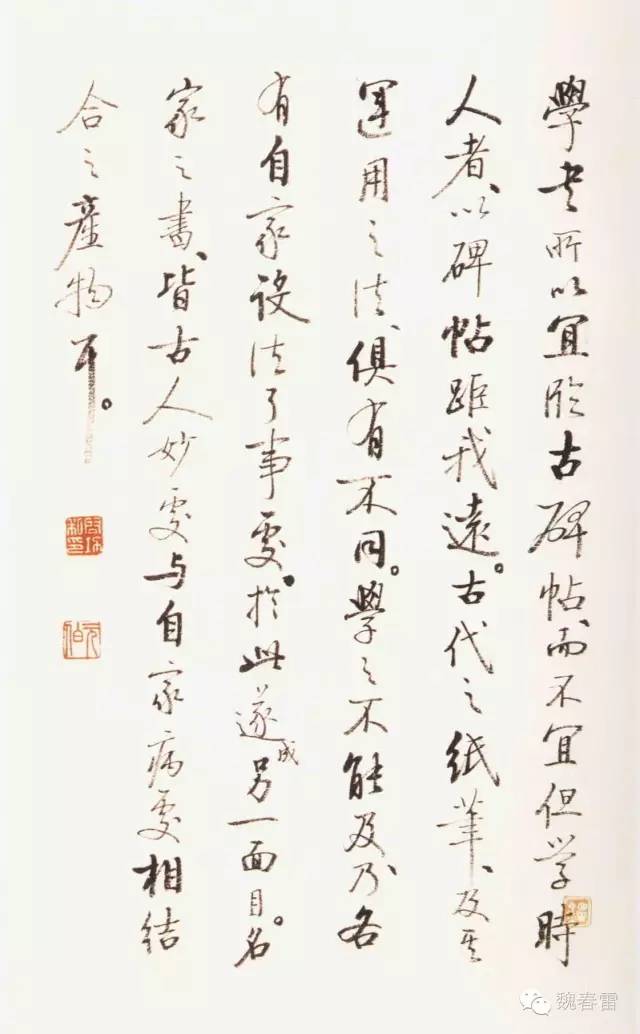 學书所以宜临古碑帖而不宜但学時
人者、以碑帖距我遠。古代之紙筆、及其
運用之法、俱有不同。學之不能及乃各
有自家设法了事處。於此遂成另一面目。名
家之書、皆古人妙處与自家病處相结
合之產物耳。
魏春雷